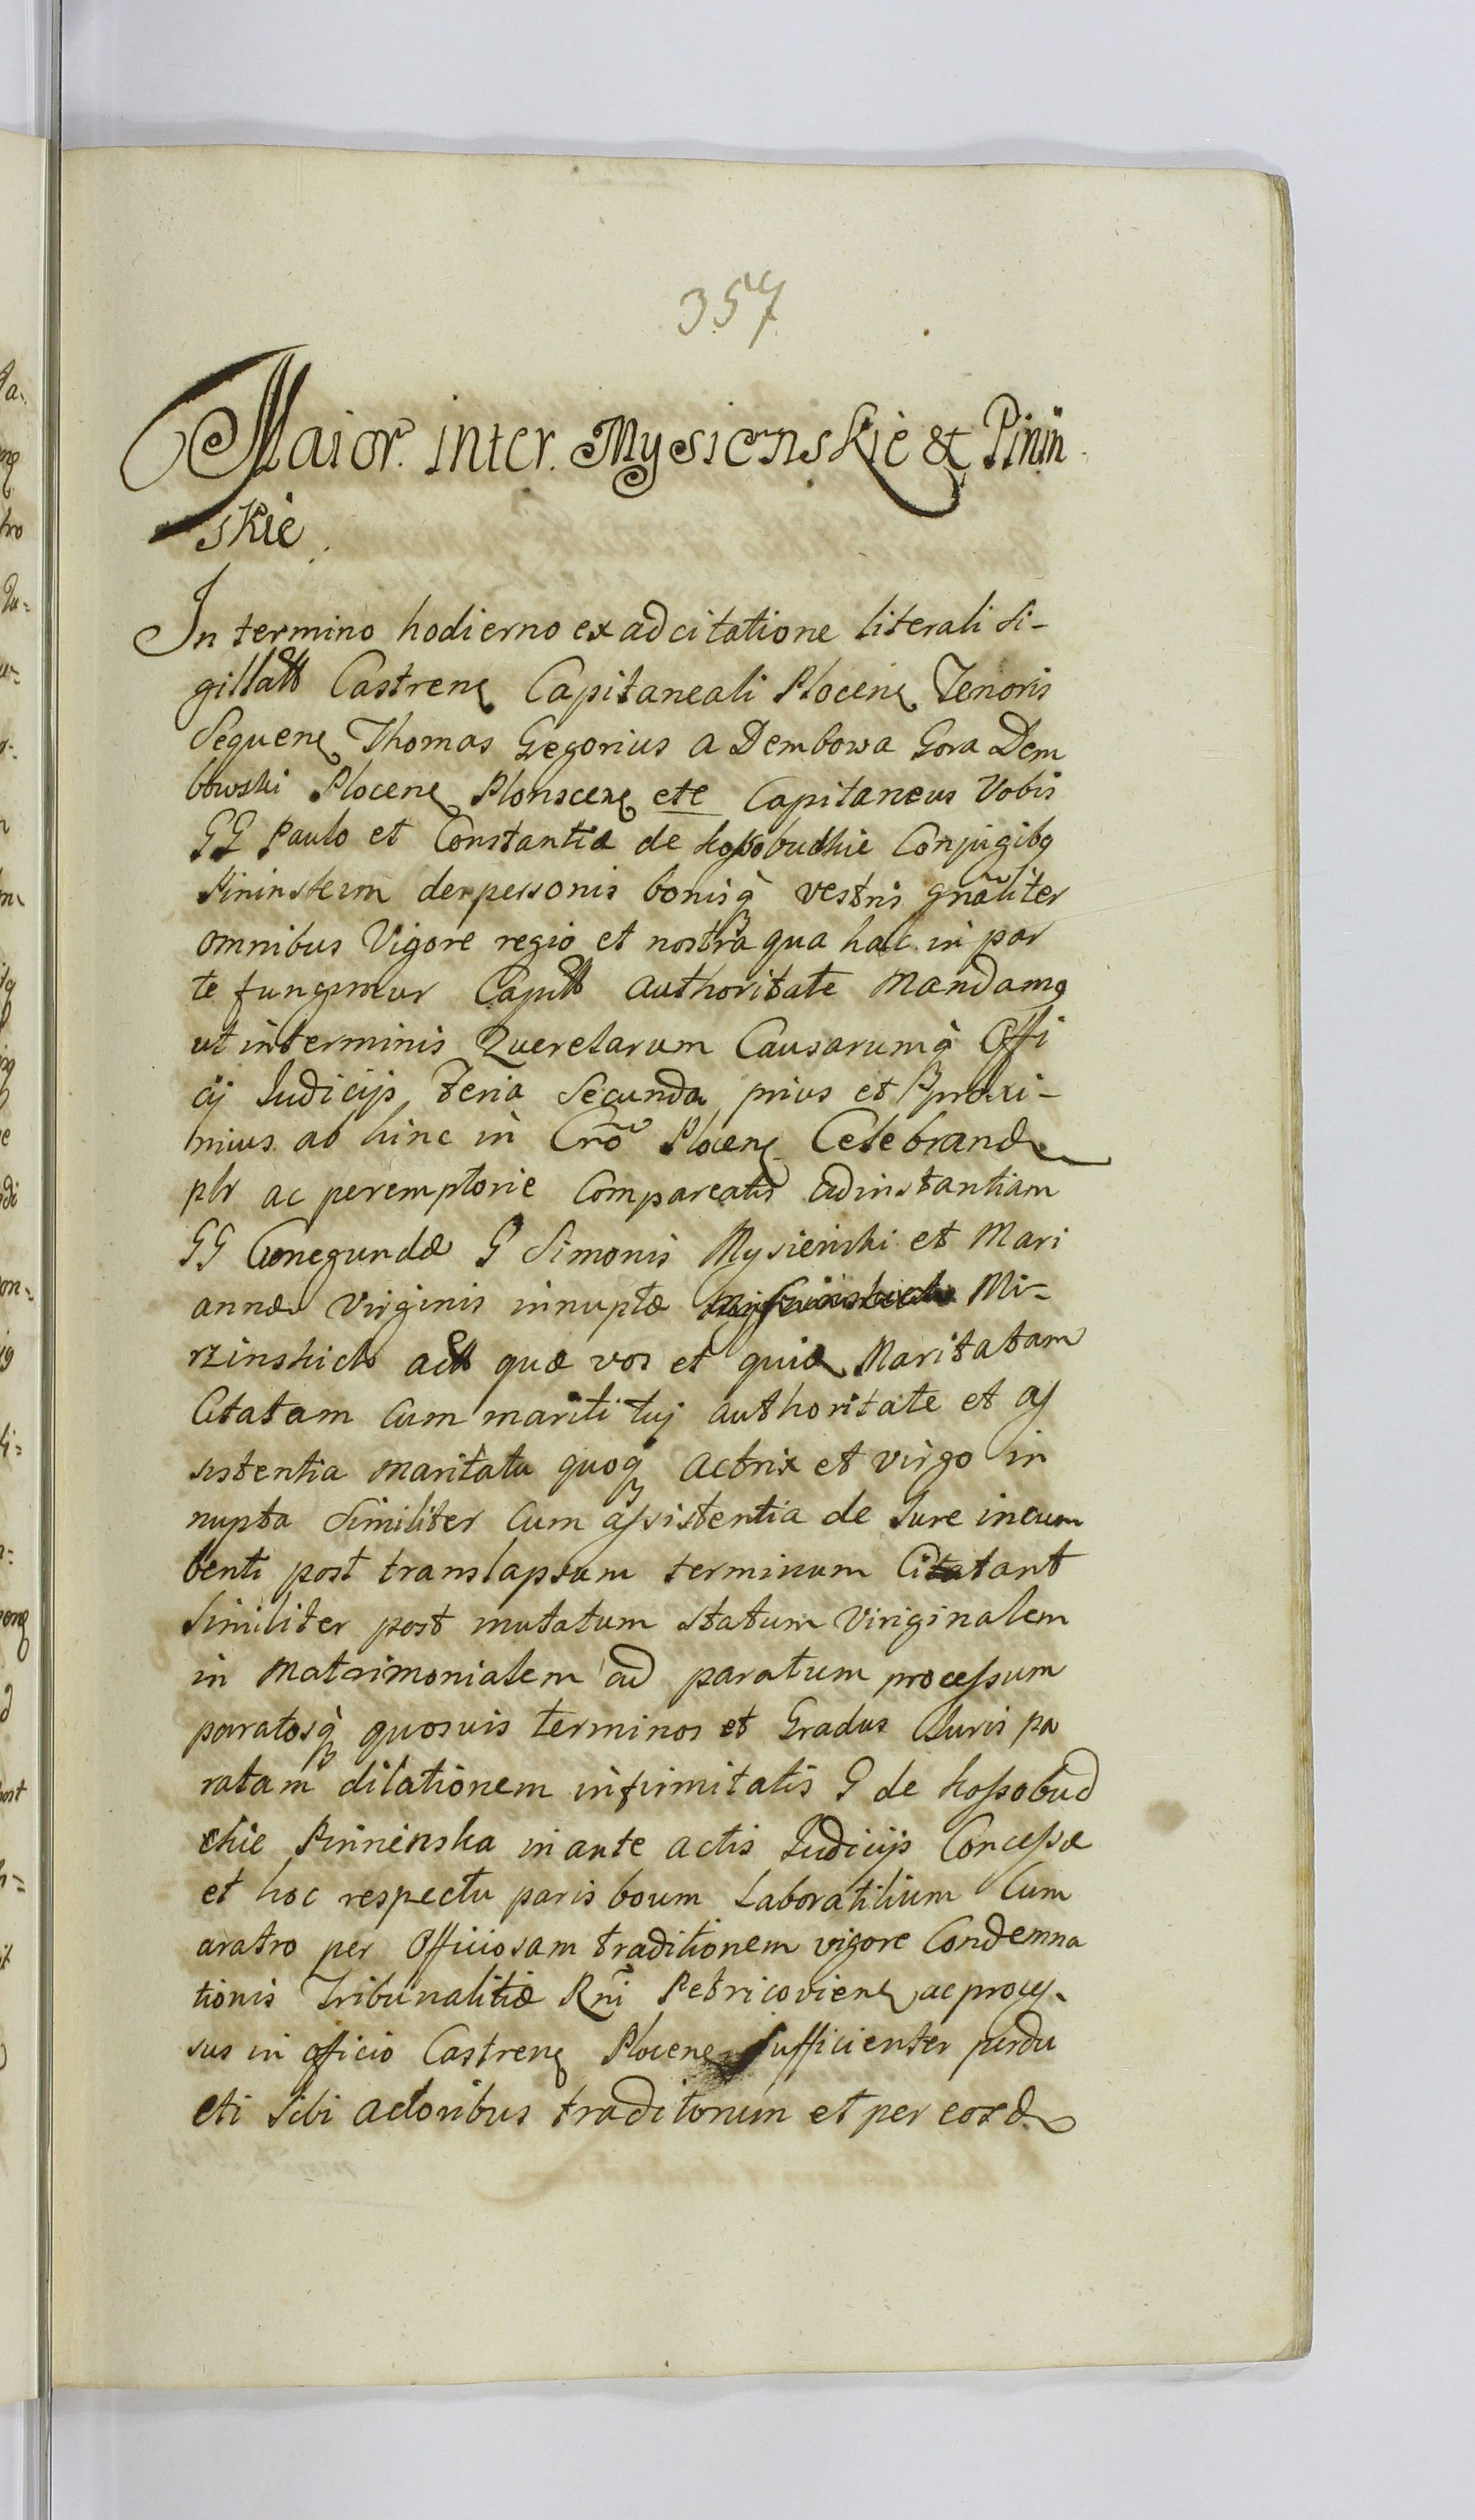 357
Maior. inter. Mysienskie & Pinin
skie.
In termino hodierno ex adcitatione literali si-
gillatt Castrenẹ Capitaneali Plocenẹ Tenoris
Sequenẹ Thomas Gregorius a Dembowa Gora Dem
bowski Plocenẹ Plonscenẹ etc Capitaneus Vobis
GG Paulo et Constantiæ de Kossobudkie Conjugibq
Pininskim de personis bonisq vestris gnãliter
omnibus Vigore regio et nostra qua hac in par
te fungimur Capitt authoritate Mandamq
ut in terminis Querelarum Causarumq Offi
cij Iudicijs feria Secunda prius et proxi-
mius ab hinc in Crõ Plocenẹ Celebrand
plr ac peremptorie Compareatis ad instantiam
GG Cunegundæ G Simonis Mysienski et Mari
annæ Virginis innuptæ Mi-
rzinskich act quæ vos et quid Maritatam
Citatam cum mariti tuj authoritate et as
sistentia maritata quoq actrix et virgo in
nupta Similiter cum assistentia de Iure incum
benti post translapsum terminum Citatant
Similiter post mutatum statum Viriginalem
in Matrimonialem ad paratum processum
paratosq quosuis terminos et Gradus Iuris pa
ratam dilationem infirmitatis G de Kossobud
chie Pininska in ante actis Iudicijs Concessæ
et hoc respectu paris boum Laboratilium cum
aratro per Officiosam traditionem vigore Condemna
tionis Tribunalitiæ Rñi Petricovienẹ ac proces-
sus in officio Castrenẹ Plocenẹ Sufficienter perdu
cti sibi actoribus traditorum et per eosd